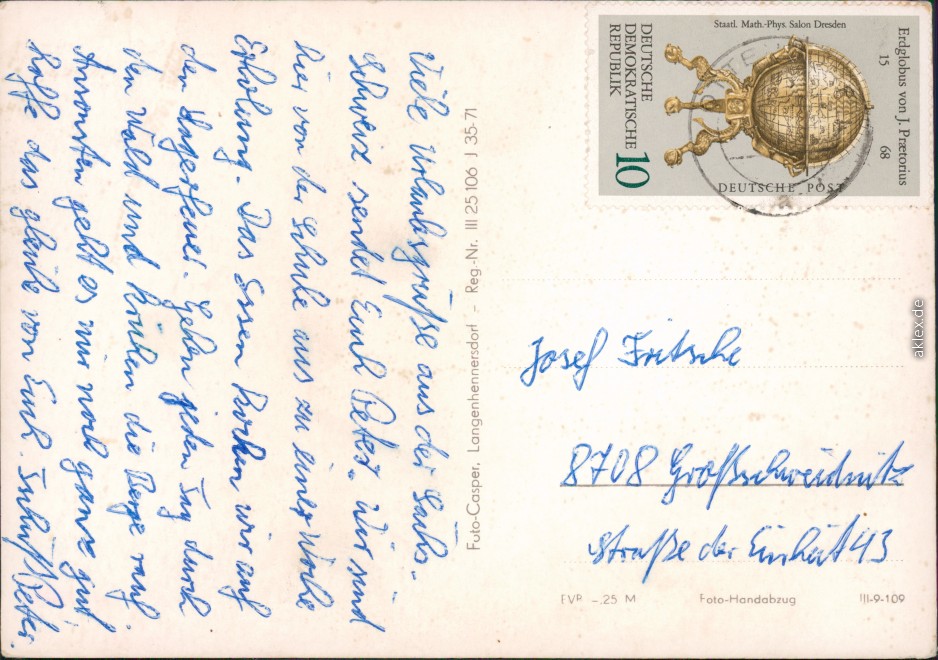 Viele Urlaubsgrüße aus der Sächs.
Schweiz sendet Euch Peter. Wir sind
hier von der Schule aus zu einer Woche
Erholung. Das Essen kochen wir auf
den Lagerfeuer. Gehen jeden Tag durch
den Wald und kraxeln die Berge rauf
Ansonsten geht es mir noch ganz gut
hoffe das gleiche von Euch. Peter.
Futo-Casper, Langenhennersdorf - Reg.-Nr. III 25 106 J 35-71
Staatl. Math.-Phys. Salon Dresden
Erdglobus von J. Prætorius
15 68
DEUTSCHE
DEMOKRATISCHE
REPUBLIK
10
DEUTSCHE POST
Josef Fritsche
8708 Großschweidnitz
Straße der Einheit 43
EVP -.25 M Foto-Handabzug III-9-109
aklex.de